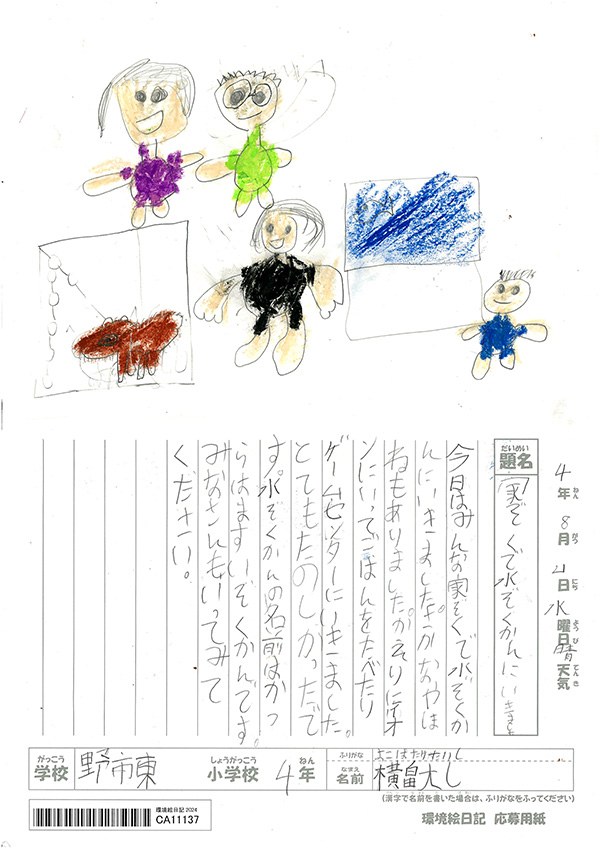 4年 8月 日 水曜日 晴 天気
ねん がつ にち ようび てんき
だいめい
題名 家ぞくで水ぞくかんにいきました
今日はみんな家ぞくで水ぞくか
んにいきました。さかなやほ
ねもありました。かえりにイオ
ンにいってごはんをたべたり
ゲームセンターにいきました。
とてもたのしかったで
す。水ぞくかんの名前はかつ
らはますいぞくかんです。
みなさんもいってみて
ください。
がっこう しょうがっこう ねん ふりがな よこはたけたいし
学校 野市東 小学校 4年 なまえ 名前 横畠大し
(漢字で名前を書いた場合は、ふりがなをふってください)
環境絵日記 2024
CA11137
環境絵日記 応募用紙